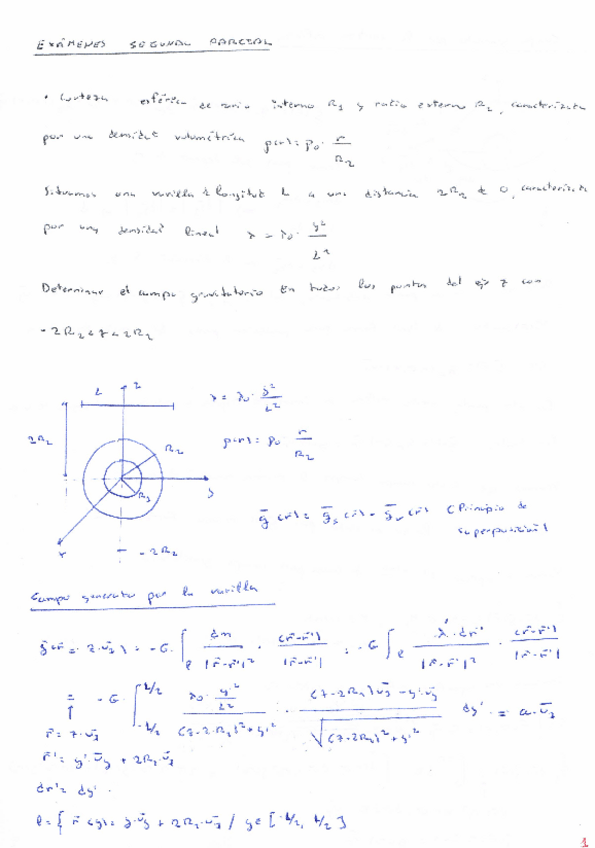 EXÁMENES SEGUNDO PARCIAL
• Corteza esférica de radio interno R1 y radio externo R2, caracterizada
por una densidad volumétrica ρ(r) = ρ0 · r/R2
Situamos una varilla de longitud L a una distancia 2R2 de O, caracterizada
por una densidad lineal λ = λ0 · y²/L²
Determinar el campo gravitatorio en todos los puntos del eje z con
-2R2 < z < 2R2
L z
λ = λ0 · y²/L²
2R2
R2
ρ(r) = ρ0 r/R2
R1
y
x
-2R2
g(r) = gs(r) + gv(r) (Principio de
superposición)
Campo generado por la varilla
g(r = z·uz) = -G ∫ℓ dm/|r-r'|² · (r-r')/|r-r'| = -G ∫ℓ λ'·dr'/|r-r'|² · (r-r')/|r-r'|
= -G ∫ L/2 -L/2 λ0 · y'²/L² / ((z-2R2)²+y'²) · ((z-2R2)uz - y'·uy)/√((z-2R2)²+y'²) dy' = a·uz
r = z·uz
r' = y'·uy + 2R2·uz
dr' = dy'
ℓ = { r(y) = y·uy + 2R2·uz / y ∈ [-L/2, L/2] }
1